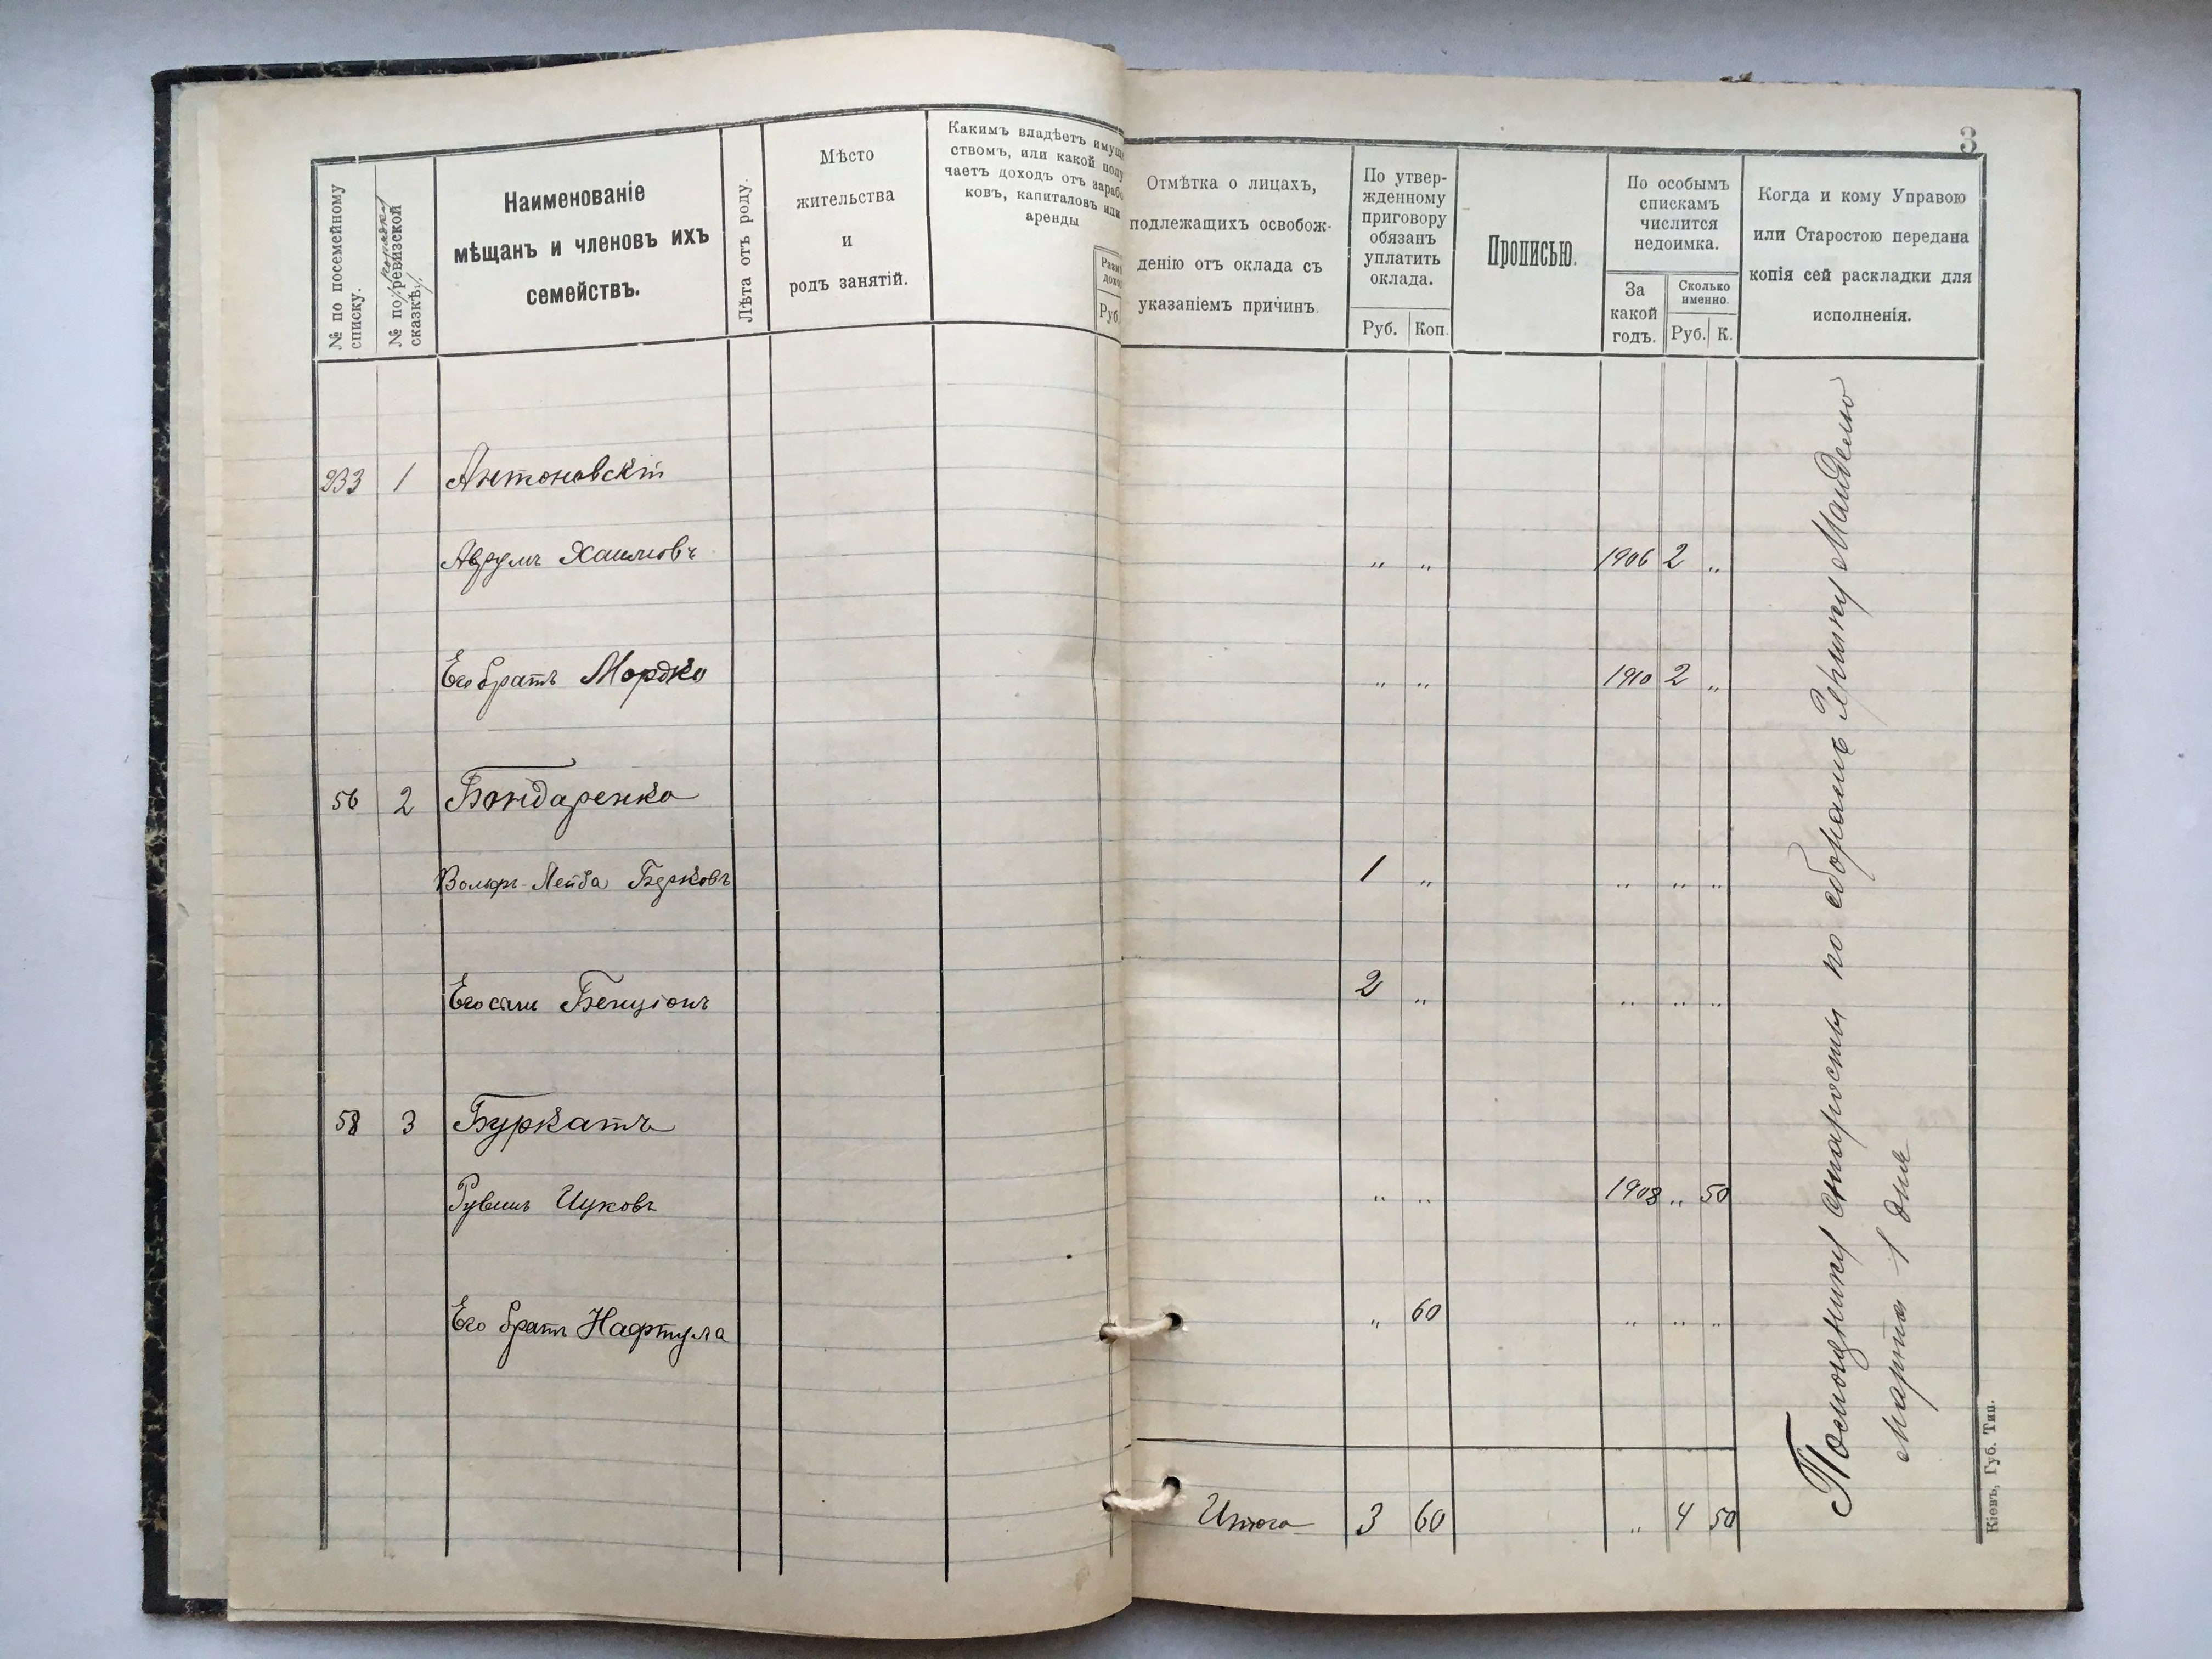 3
№ по посемейному
списку.
№ по ревизской
сказкѣ.
порядку
Наименованіе
мѣщанъ и членовъ ихъ
семействъ.
Лѣта отъ роду.
Мѣсто
жительства
и
родъ занятій.
Какимъ владѣетъ имуще
ствомъ, или какой полу
чаетъ доходъ отъ зараб
ковъ, капиталовъ или
аренды
Разм
дохо
Руб.
Отмѣтка о лицахъ,
подлежащихъ освобож-
денію отъ оклада съ
указаніемъ причинъ.
По утвер-
жденному
приговору
обязанъ
уплатить
оклада.
Руб. Коп.
Прописью.
По особымъ
спискамъ
числится
недоимка.
За
какой
годъ.
Сколько
именно.
Руб. К.
Когда и кому Управою
или Старостою передана
копія сей раскладки для
исполненія.
233 1 Антоновскій
Аврумъ Хаимовъ „ „ 1906 2 „
Его братъ Мордко „ „ 1910 2 „
56 2 Бондаренко
Вольфъ-Лейба Берковъ 1 „ „ „ „
Его сынъ Бенціонъ 2 „ „ „ „
58 3 Буркатъ
Рувинъ Ицковъ „ „ 1908 „ 50
Его братъ Нафтула „ 60 „ „ „
Итого 3 60 „ 4 50
Помощнику старосты по сборамъ Гершку Манделю
марта 1 дня
Кіевъ, Губ. Тип.